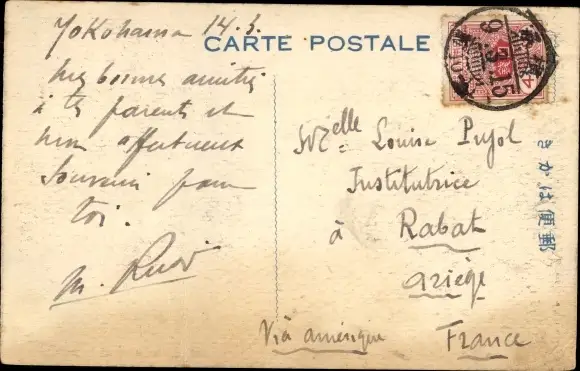 Yokohama 14.3.
CARTE POSTALE
Mes bonnes amitiés
à tes parents et
mon affectueux
souvenir pour
toi.
Melle Louise Pujol
Institutrice
à Rabat
Ariège
Viâ amérique France
9.3.15
4
きかは便郵